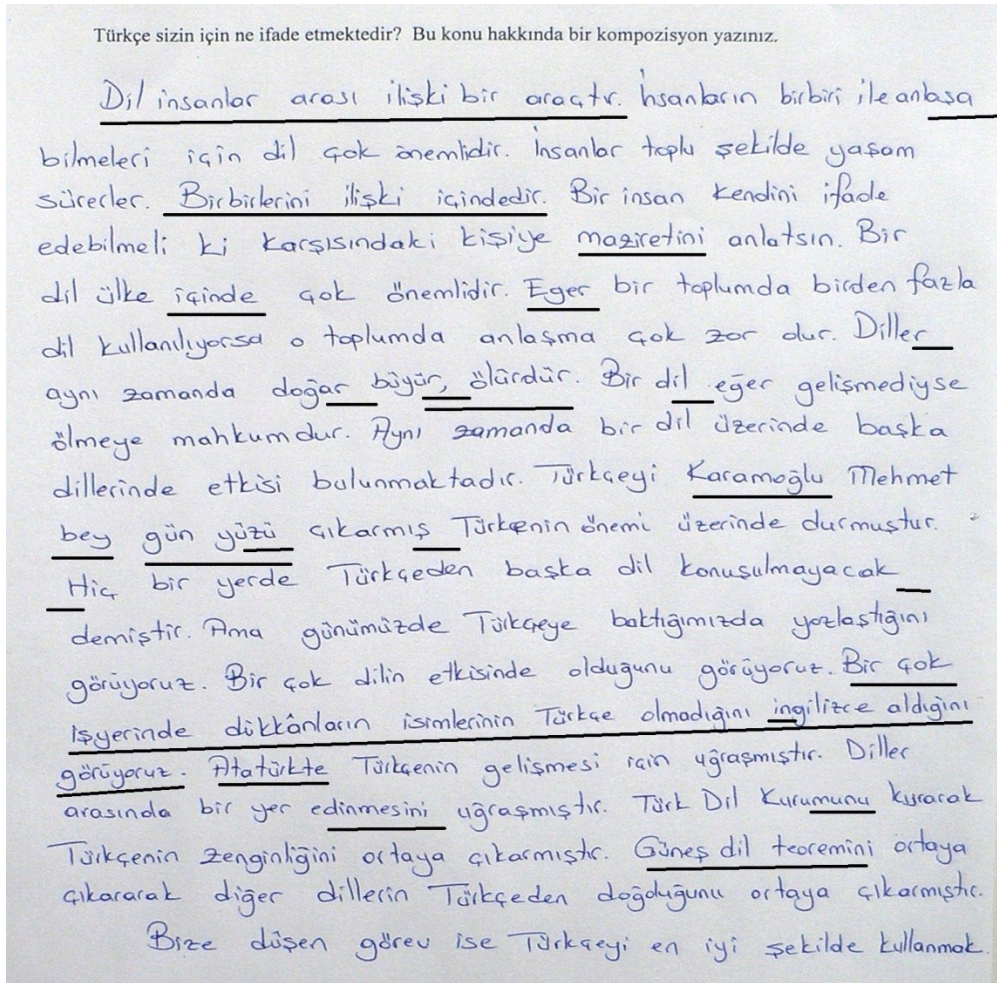 Türkçe sizin için ne ifade etmektedir? Bu konu hakkında bir kompozisyon yazınız.
Dil insanlar arası ilişki bir araçtır. İnsanların birbiri ile anlaşa
bilmeleri için dil çok önemlidir. İnsanlar toplu şekilde yaşam
sürerler. Birbirlerini ilişki içindedir. Bir insan kendini ifade
edebilmeli ki karşısındaki kişiye maziretini anlatsın. Bir
dil ülke içinde çok önemlidir. Eger bir toplumda birden fazla
dil kullanılıyorsa o toplumda anlaşma çok zor dur. Diller
aynı zamanda doğar büyür, ölürdür. Bir dil eğer gelişmediyse
ölmeye mahkumdur. Aynı zamanda bir dil üzerinde başka
dillerinde etkisi bulunmaktadır. Türkçeyi Karamoğlu Mehmet
bey gün yüzü çıkarmış Türkçenin önemi üzerinde durmuştur.
Hiç bir yerde Türkçeden başka dil konuşulmayacak
demiştir. Ama günümüzde Türkçeye baktığımızda yozlaştığını
görüyoruz. Bir çok dilin etkisinde olduğunu görüyoruz. Bir çok
işyerinde dükkânların isimlerinin Türkçe olmadığını ingilizce aldığını
görüyoruz. Atatürkte Türkçenin gelişmesi için uğraşmıştır. Diller
arasında bir yer edinmesini uğraşmıştır. Türk Dil Kurumunu kurarak
Türkçenin zenginliğini ortaya çıkarmıştır. Güneş dil teoremini ortaya
çıkararak diğer dillerin Türkçeden doğduğunu ortaya çıkarmıştır.
Bize düşen görev ise Türkçeyi en iyi şekilde kullanmak.